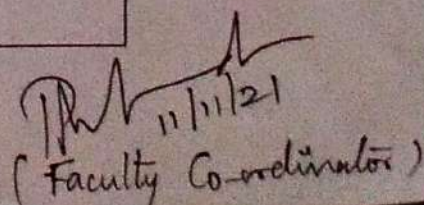 11/11/21
(Faculty Co-ordinator)